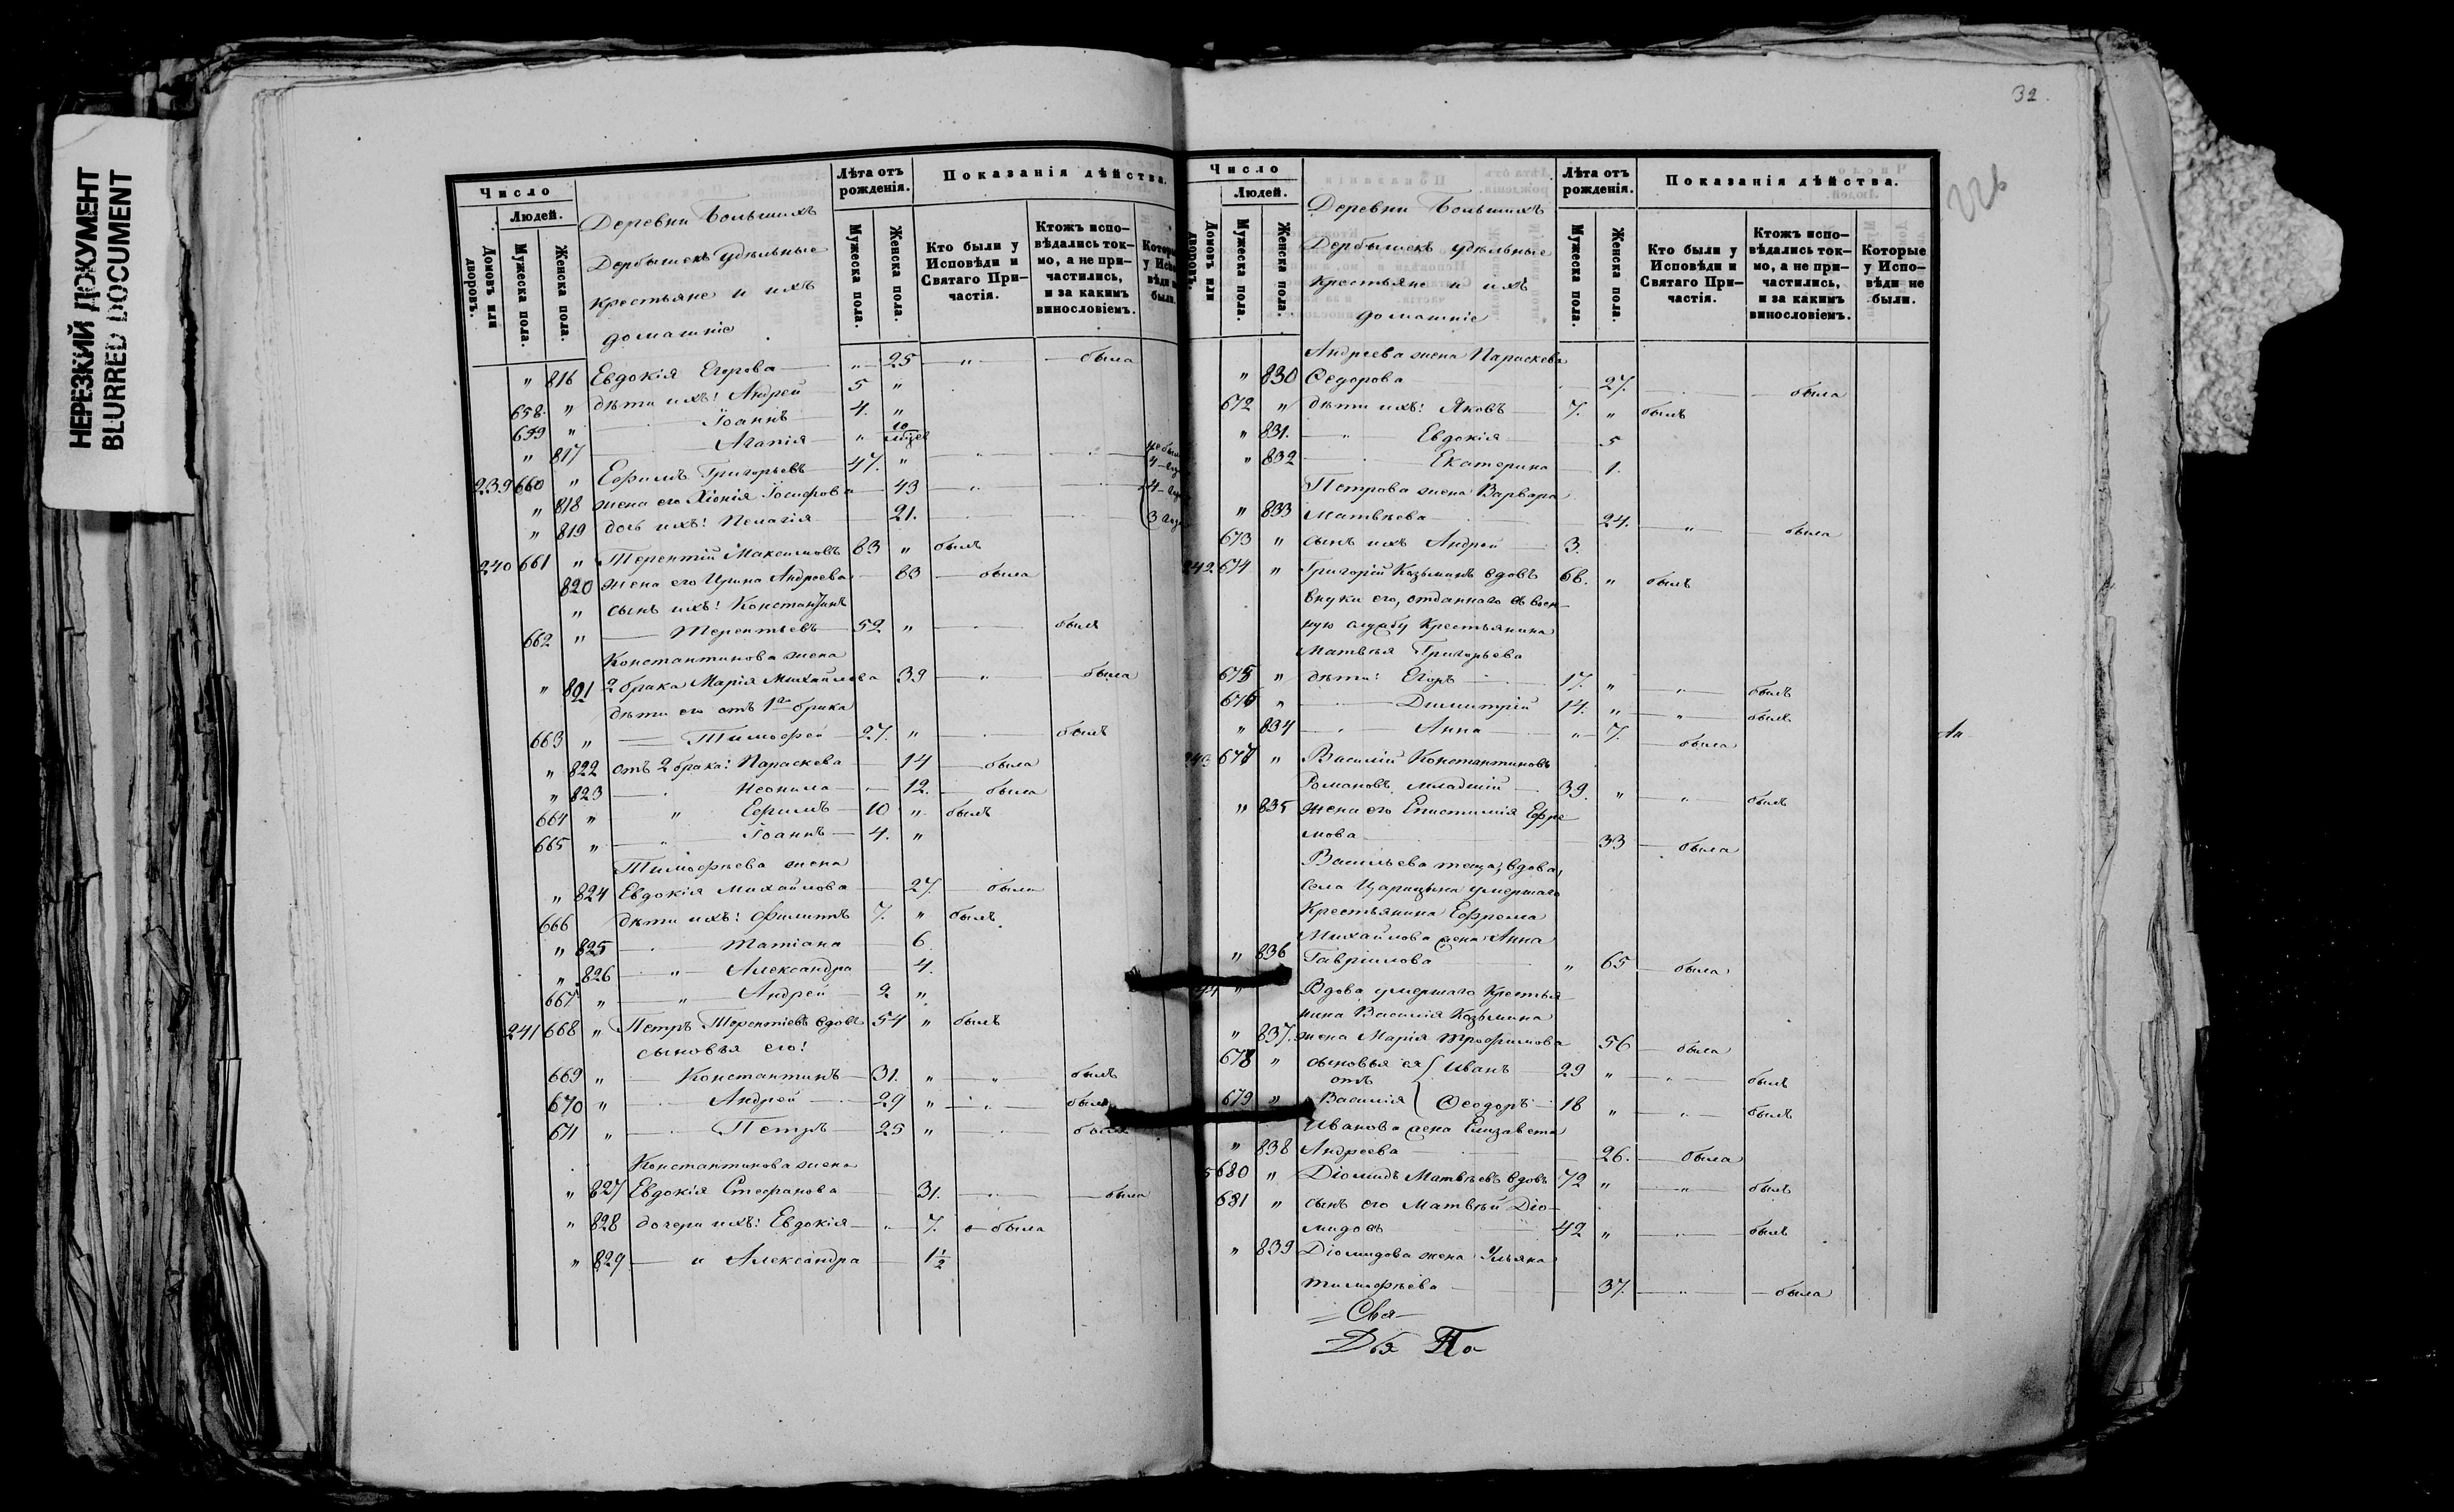 НЕРЕЗКИЙ ДОКУМЕНТ
BLURRED DOCUMENT
Число
Людей.
Домовъ или дворовъ.
Мужеска пола.
Женска пола.
Деревни Большихъ
Дербышекъ удѣльные
крестьяне и ихъ
домашніе
Лѣта отъ рожденія.
Мужеска пола.
Женска пола.
Показанія дѣйства.
Кто были у Исповѣди и Святаго При-частія.
Ктожъ испо-вѣдались ток-мо, а не при-частились, и за какимъ винословіемъ.
" 816 Евдокія Егорова " 25 " была
658. " дѣти ихъ: Андрей 5 "
659 " Іоаннъ 4. "
" 817 Агапія " 10
239 660 " Ефимъ Григорьевъ 47. " "
" 818 жена его Хіонія Іосифова 43 "
" 819 дочь ихъ: Пелагія 21.
240 661 " Терентій Максимовъ 83 " былъ
820 жена его Ирина Андреева 83 была
" сынъ ихъ: Константинъ
662 " Терентьевъ 52 " былъ
Константинова жена
" 821 2 брака Марія Михайлова 39 " была
дѣти его отъ 1го брака
663 " Тимофей 27. " былъ
" 822 отъ 2 брака: Параскева 14 была
" 823 Неонила 12. была
664 " " Ефимъ 10 " былъ
665 " " Іоаннъ 4. "
Тимофѣева жена
" 824 Евдокія Михайлова 27. была
666 дѣти ихъ: Филиппъ 7. " былъ
" 825 Татіана 6
" 826 " Александра 4.
667 " " Андрей 2 "
241 668 " Петръ Терентіевъ вдовъ 54 " былъ
сыновья его:
669 " Константинъ 31. " " былъ
670 " Андрей 29 " " былъ
671 " Петръ 25 " былъ
Константинова жена
" 827 Евдокія Стефанова 31. " была
" 828 дочери ихъ: Евдокія " 7. была
" 829 и Александра 1½
32.
226
Число
Людей.
Домовъ или дворовъ.
Мужеска пола.
Женска пола.
Деревни Большихъ
Дербышекъ удѣльные
крестьяне и ихъ
домашніе
Лѣта отъ рожденія.
Мужеска пола.
Женска пола.
Показанія дѣйства.
Кто были у Исповѣди и Святаго При-частія.
Ктожъ испо-вѣдались ток-мо, а не при-частились, и за какимъ винословіемъ.
Которые у Испо-вѣди не были.
Андреева жена Параскева
" 830 Ѳедорова 27. была
672 " дѣти ихъ: Яковъ 7. " былъ
" 831. " Евдокія 5
" 832 Екатерина 1.
Петрова жена Варвара
" 833 Матвѣева 24. " была
673 " сынъ ихъ Андрей 3.
242 674 " Григорій Козьминъ вдовъ 68. " былъ
внуки его, отданнаго въ воен-
ную службу крестьянина
Матвѣя Григорьева
675 " дѣти: Егоръ 17. " " былъ
676 " Димитрій 14. " " былъ
" 834 " Анна " 7. была
243 677 " Василій Константиновъ
Романовъ младшій 39. " " былъ
" 835 жена его Епистимія Ефре
мова 33 была
Васильева теща, вдова,
села Царицына умершаго
крестьянина Ефрема
Михайлова жена Анна
" 836 Гаврилова " 65 была
Вдова умершаго крестья
нина Василія Козьмина
" 837. жена Марія Трофимова 56 была
678 " сыновья ея Иванъ 29 " " былъ
отъ
679 " Василія Ѳеодоръ 18 " " былъ
Иванова жена Елизавета
" 838 Андреева 26. была
5 680 " Діомидъ Матвѣевъ вдовъ 72 " " былъ
681 " сынъ его Матвѣй Діо-
мидовъ 42 " " былъ
" 839 Діомидова жена Ульяна
Тимофѣева 37. " была